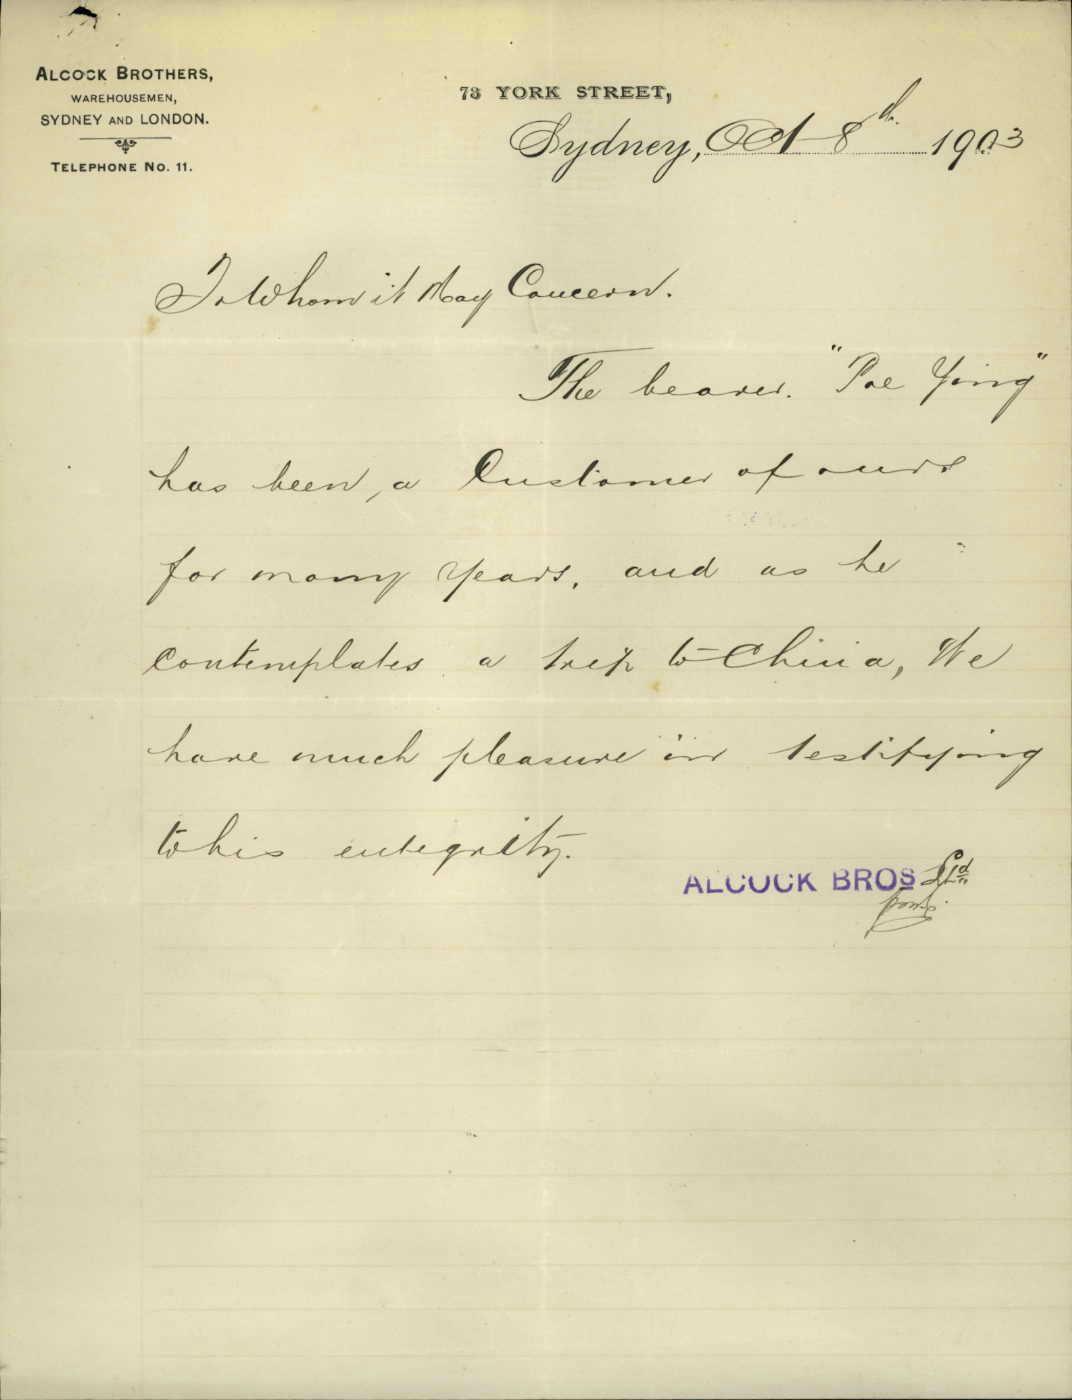 ALCOCK BROTHERS,
WAREHOUSEMEN,
SYDNEY AND LONDON.
TELEPHONE NO. 11.
73 YORK STREET,
Sydney, Oct 8th 1903
To Whom it May Concern.
The bearer. "Poe Ying"
has been, a Customer of ours
for many years, and as he
contemplates a trip to China, We
have much pleasure in testifying
to his integrity.
ALCOCK BROS Ltd